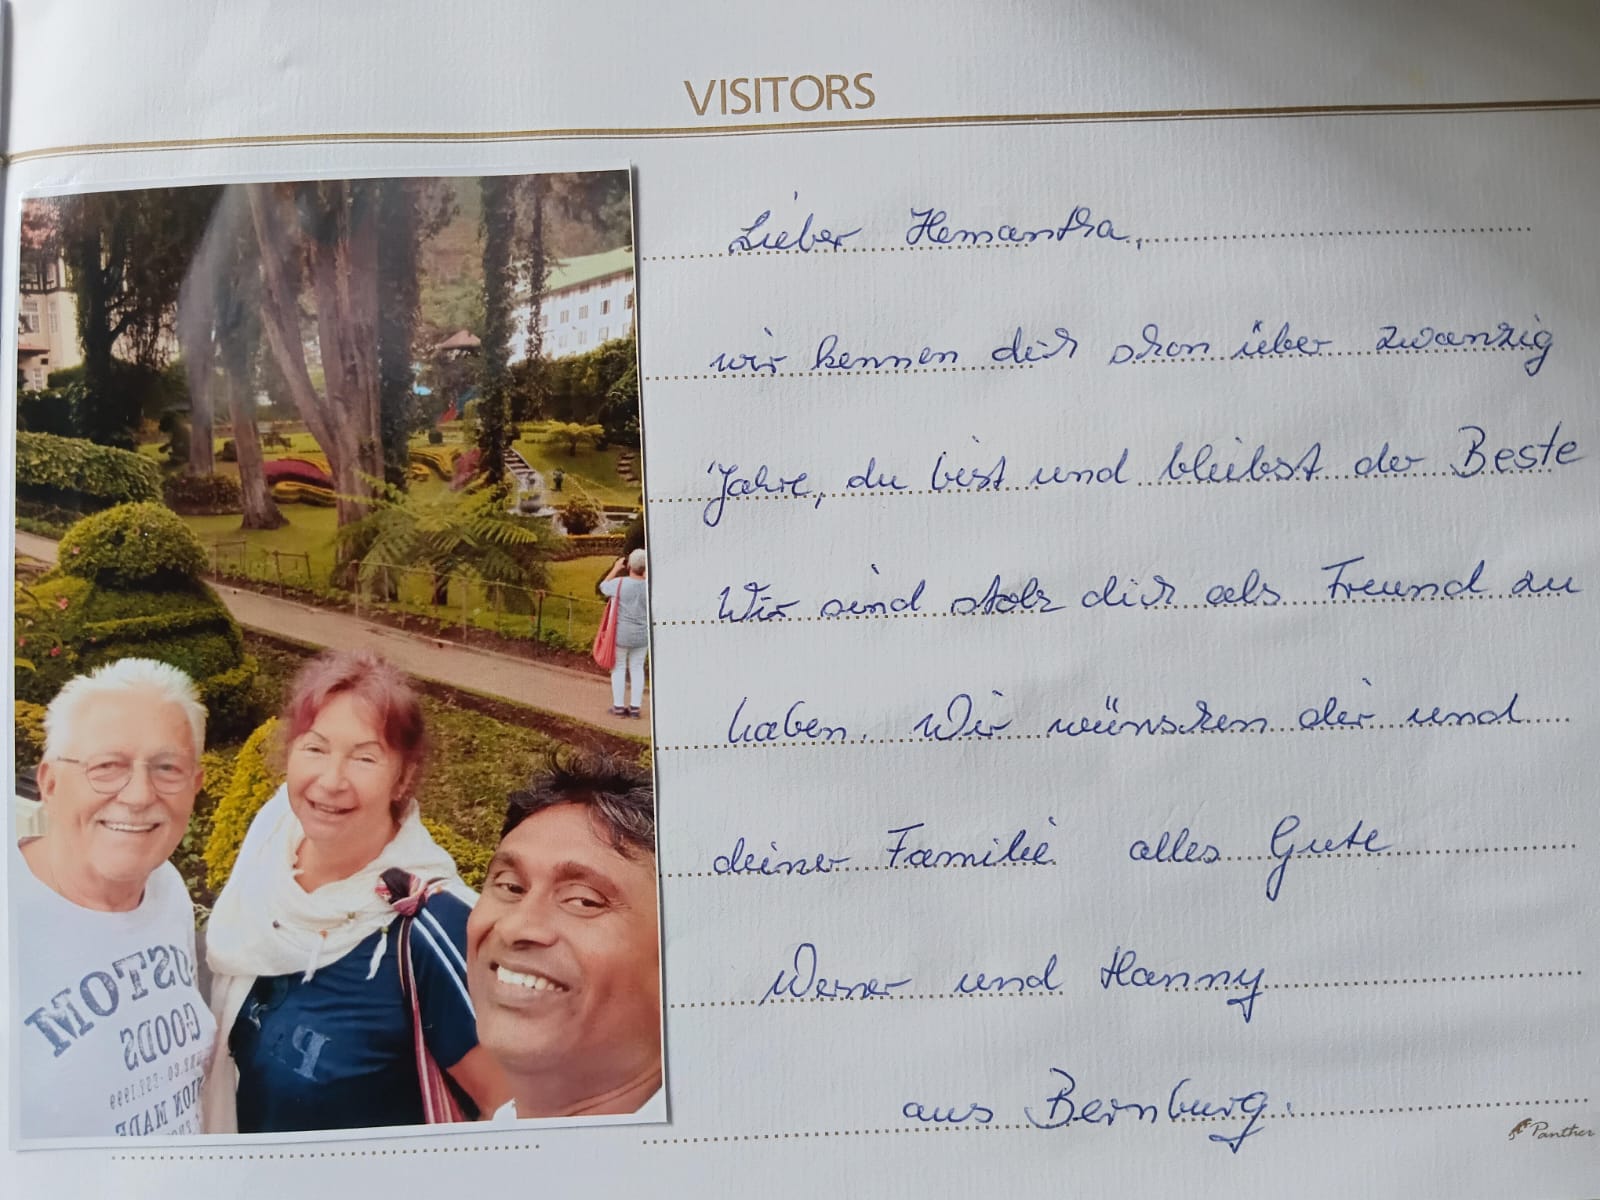 VISITORS
Lieber Hemantha,
wir kennen dich schon über zwanzig
Jahre, du bist und bleibst der Beste
Wir sind stolz dich als Freund zu
haben. Wir wünschen dir und
deiner Familie alles Gute
Werner und Hanny
aus Bernburg.
Panther
CUSTOM
GOODS